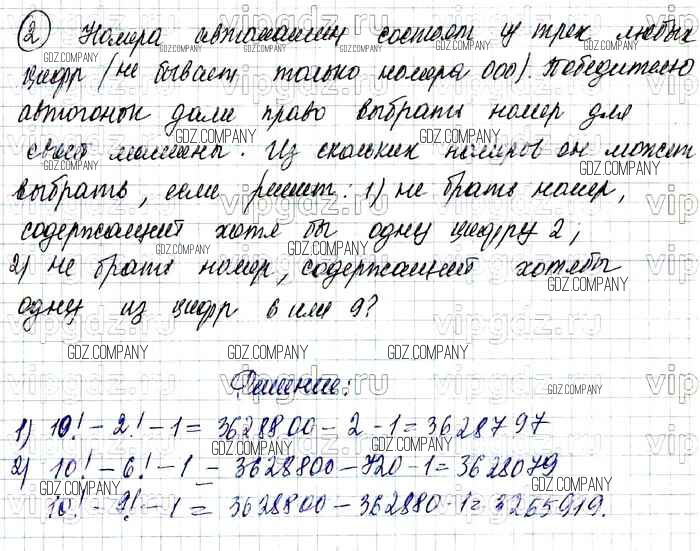 2 Номера автомашин состоят из трех любых
цифр (не бывает только номера 000). Победителю
автогонок дали право выбрать номер для
своей машины. Из скольких номеров он может
выбрать, если решит: 1) не брать номер,
содержащий хотя бы одну цифру 2;
2) не брать номер, содержащий хотябы
одну из цифр 6 или 9?
Решение:
1) 10! - 2! - 1 = 3628800 - 2 - 1 = 3628797
2) 10! - 6! - 1 = 3628800 - 720 - 1 = 3628079
10! - 9! - 1 = 3628800 - 362880 - 1 = 3265919.
GDZ.COMPANY
vipgdz.ru